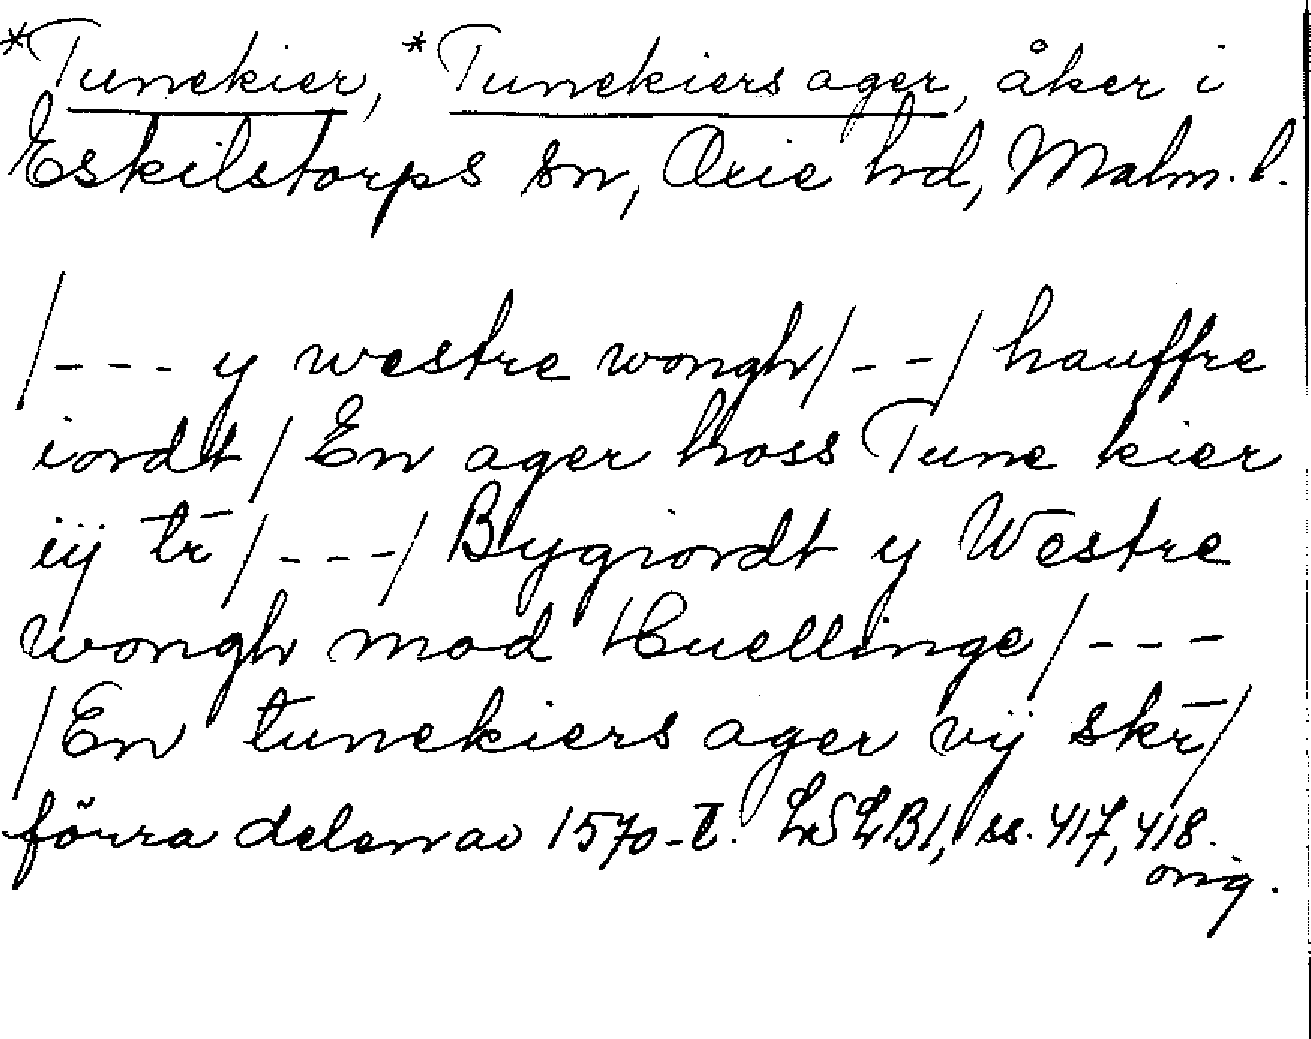 *Tunekier, *Tunekiers ager, åker i
Eskilstorps sn, Oxie hd, Malm. l.
/--- y westre wongh/--/ hauffre
iordt / En ager hoss Tune kier
iij tr̄ /---/ Bygiordt y Westre
wongh mod Huellinge /---
/En tunekiers ager vij skr̄/
förra delen av 1570-t. LSLB1, ss. 417, 418.
orig.